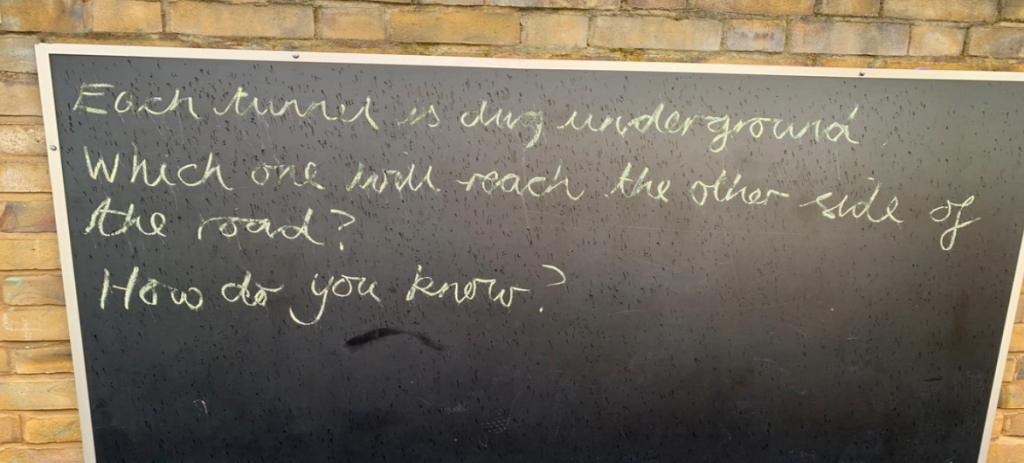 Each tunnel is dug underground
Which one will reach the other side of
the road?
How do you know?